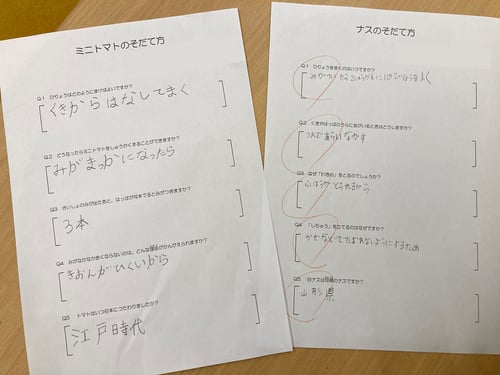 ミニトマトのそだて方
Q.1 ひりょうはどのように まけばよいですか？
くきからはなしてまく
Q.2 どうなったらミニトマトをしゅうかくすることができますか？
みがまっかになったら
Q3 さいしょのみが出たあと、はっぱが何本でるとみがつきますか？
3本
Q4 みがなかなか赤くならないのは、どんな理由がかんがえられますか？
きおんがひくいから
Q5 トマトはいつ日本につたわりましたか？
江戸時代
ナスのそだて方
Q.1 ひりょうをまくのはいつですか？
みがつい
Q.2 くきやはっぱのうらに虫がいるときはどうしますか？
水であらいながす
Q3 なぜ「わき め」をとるのでしょうか？
Q4 「しちゅう」を立てるのはなぜですか？
かぜなどでたおれないようにするため
Q5 白ナスは何県のナスですか？
山形県